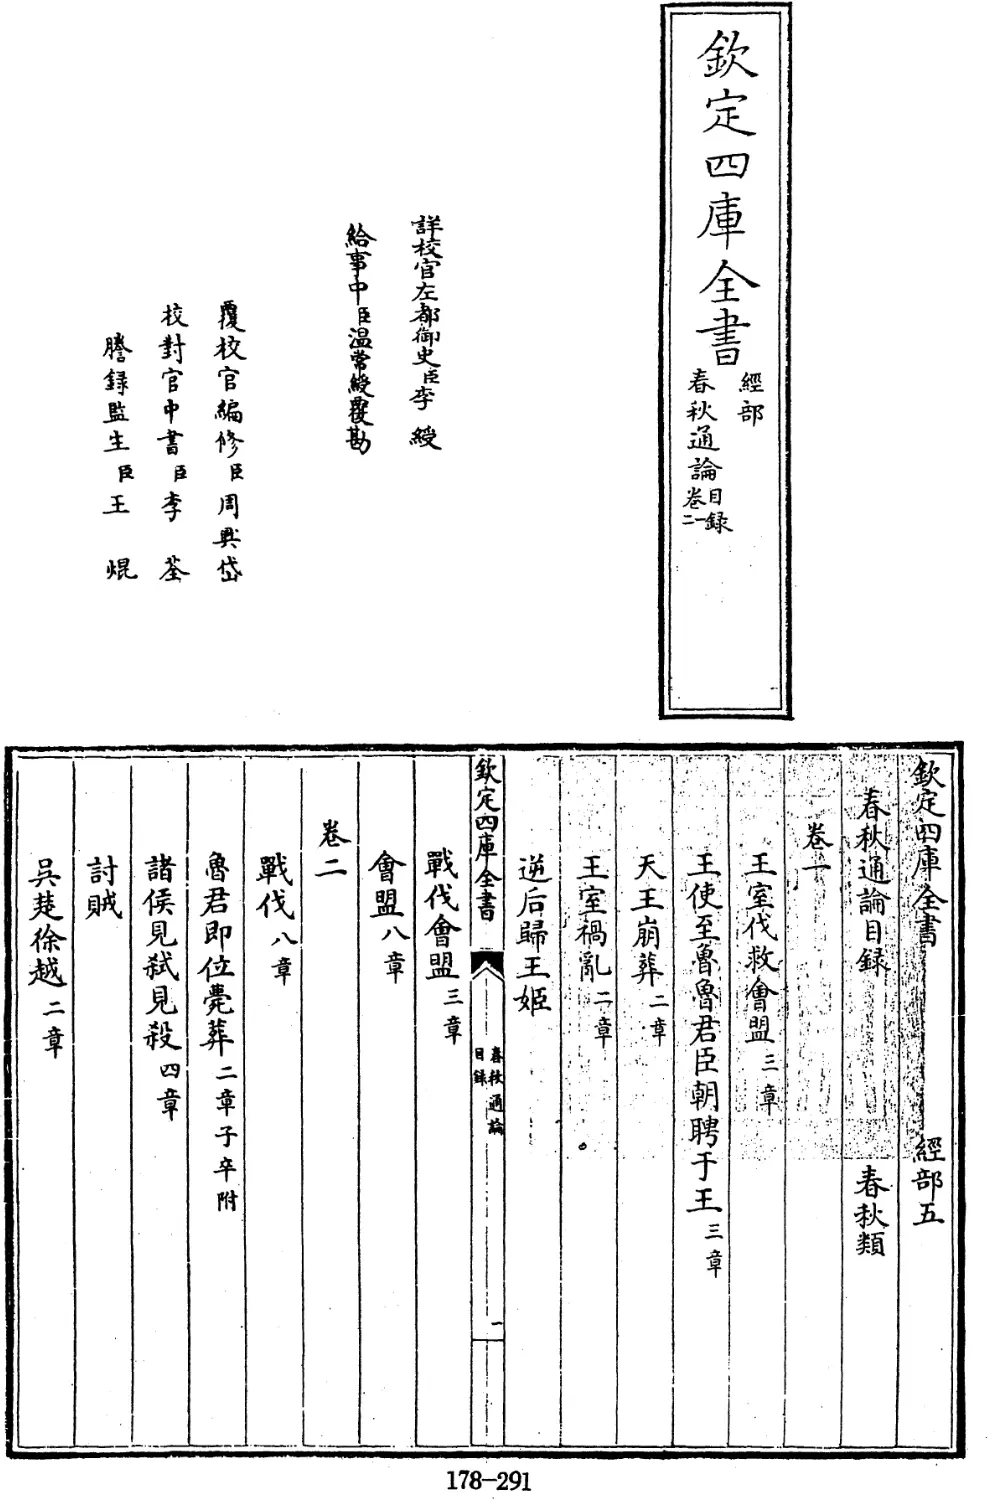 欽定四庫全書
經部
春秋通論
目録
卷一
二
詳校官左都御史臣李綬
給事中臣温常綬覆勘
覆校官編修臣周興岱
校對官中書臣李荃
謄録監生臣王焜
欽定四庫全書 經部五
春秋通論目録 春秋類
卷一
王室伐救會盟三章
王使至魯魯君臣朝聘于王三章
天王崩葬二章
王室禍亂二章
逆后歸王姬
欽定四庫全書
春秋通論
目録
一
戰伐會盟三章
會盟八章
卷二
戰伐八章
魯君即位薨葬二章子卒附
諸侯見弑見殺四章
討賊
吳楚徐越二章
178-291